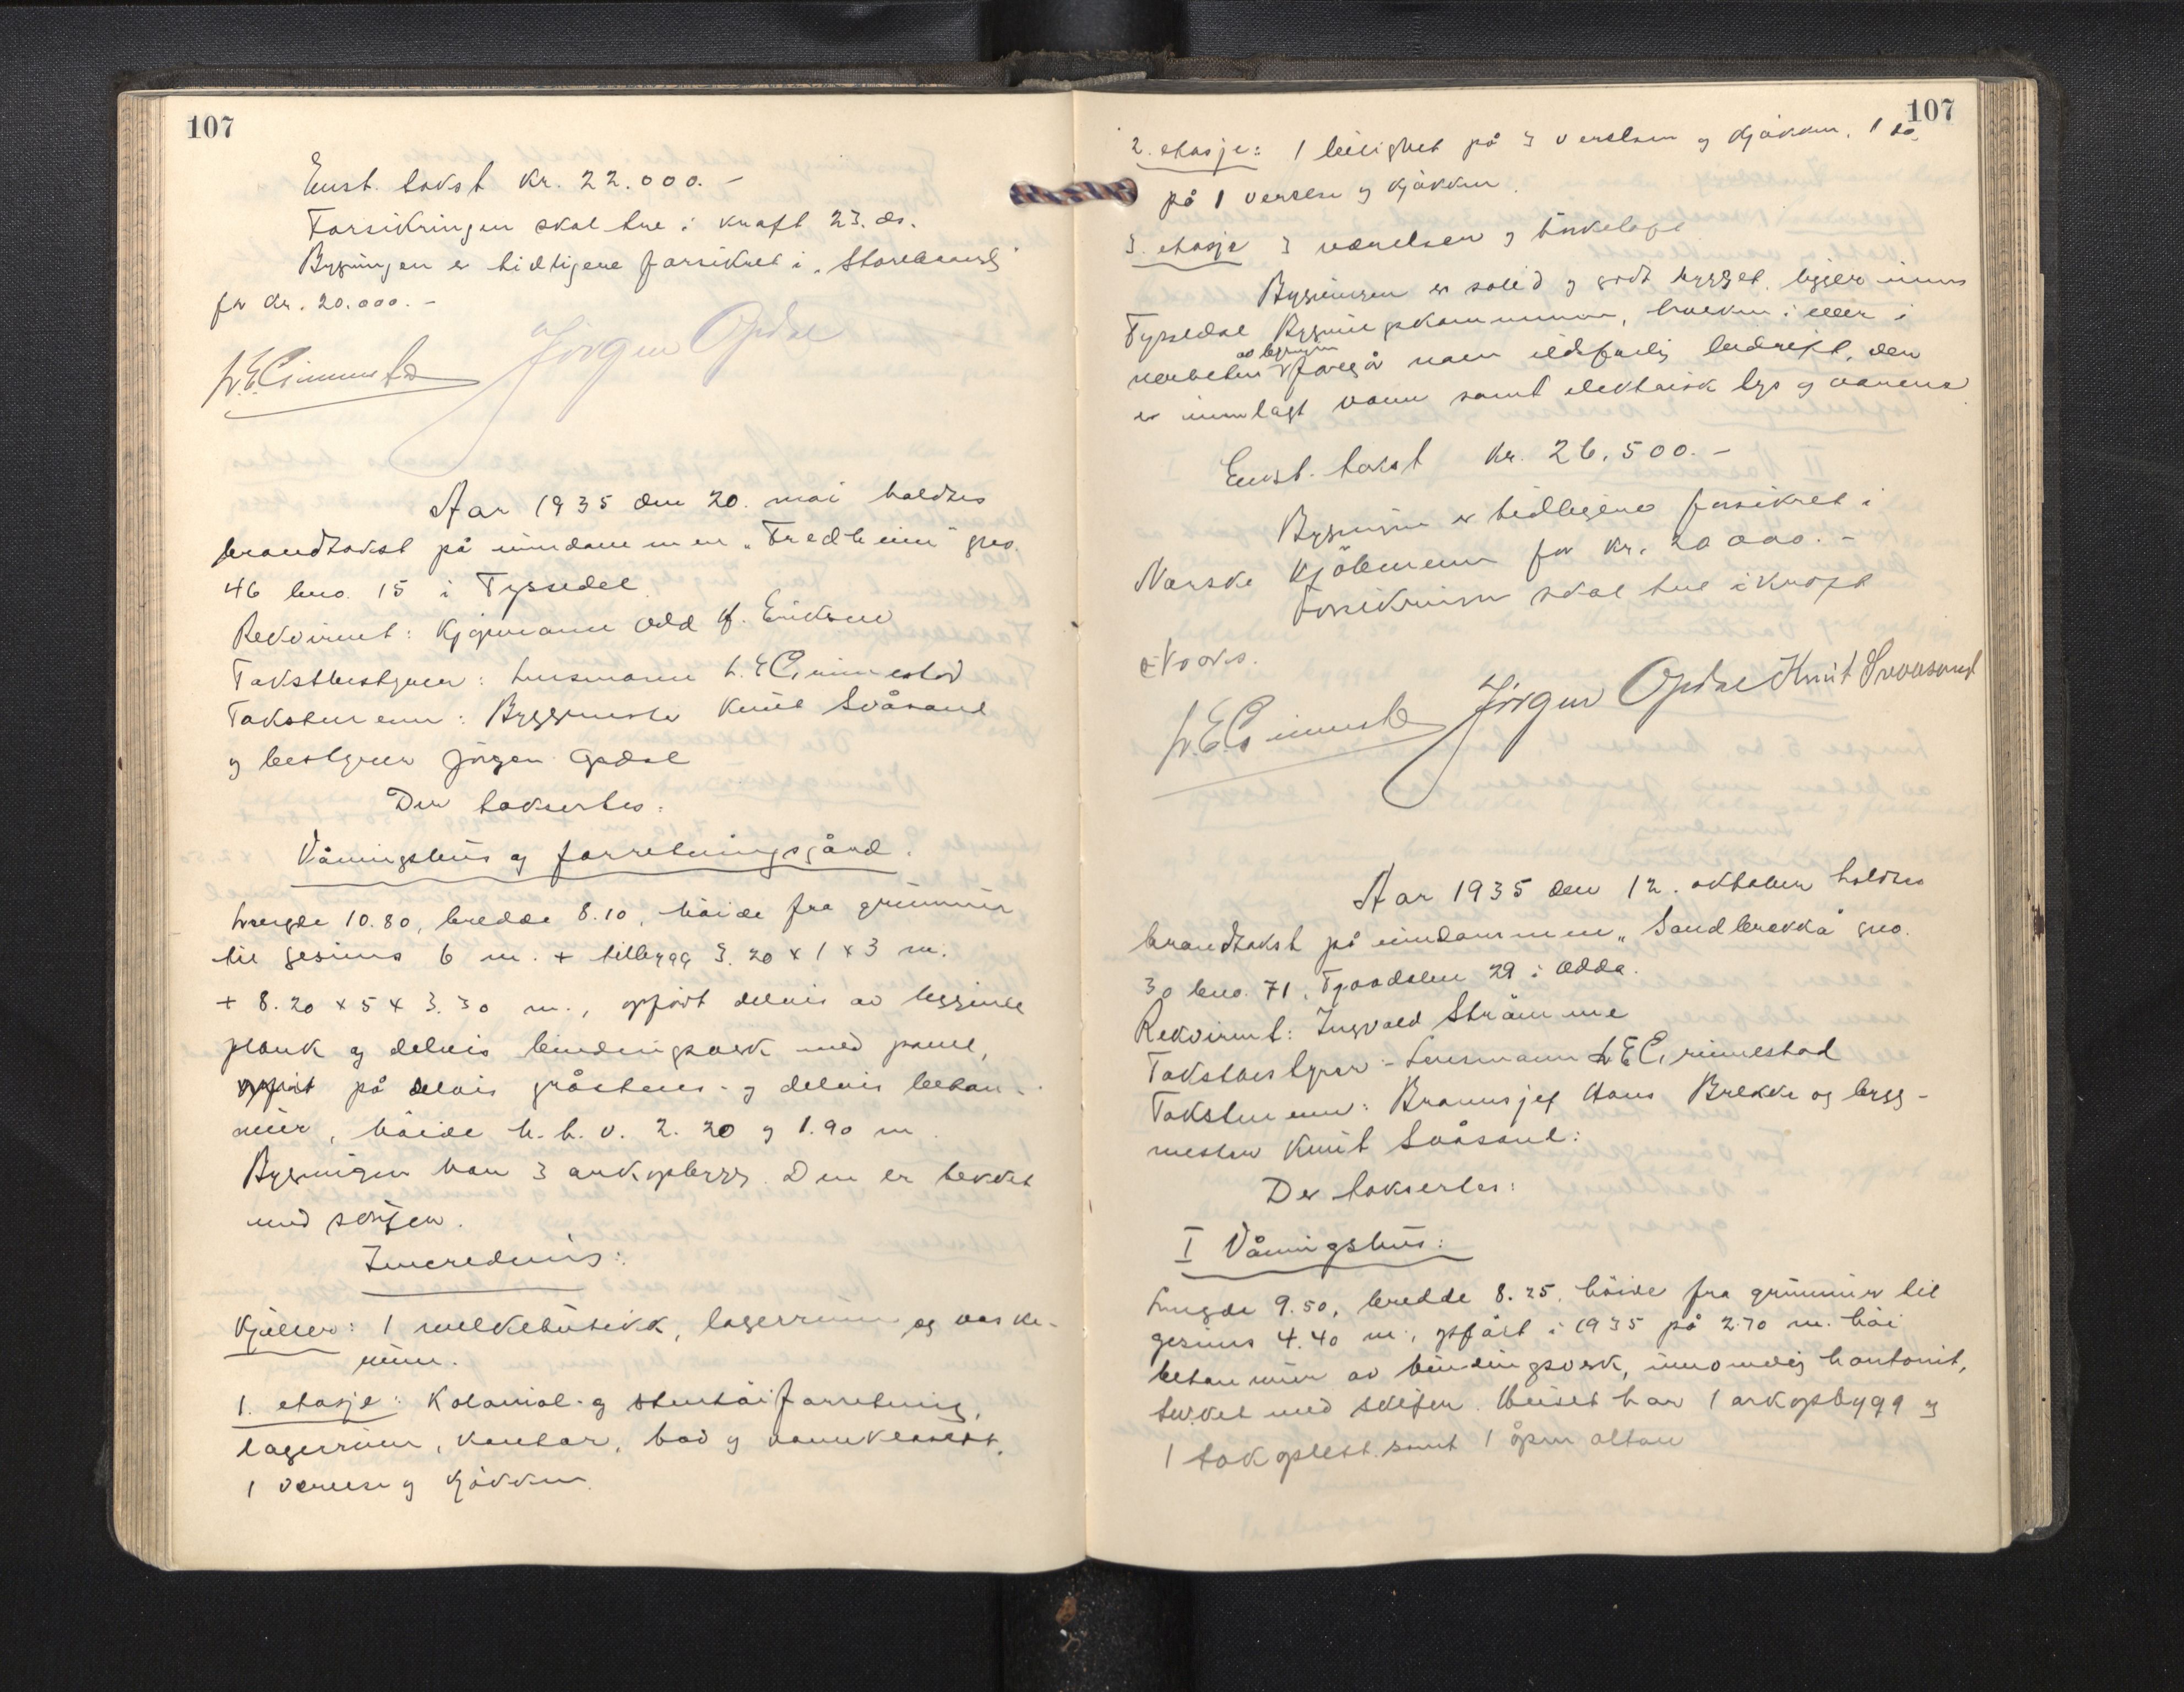 107
Enst. takst kr. 22.000.-
Forsikringen skal tre i kraft 23. ds.
Bygningen er tidligere forsikret i „Storebrand"
for kr. 20.000.-
L. E. Grimnestad Jørgen Opdal
Aar 1935 den 20. mai holdtes
brandtakst på eiendommen „Fredheim" gno.
46 bno. 15 i Tyssedal
Rekvirent: Kjøpmann Odd Eriksen
Takstbestyrer: Lensmann L. E. Grimnestad
Takstmenn: Byggmester Knut Svåsand
og bestyrer Jörgen Opdal
Der takseertes:
Våningshus og forretningsgård.
Lengde 10.80, bredde 8.10, höide fra grunnmur
til gesims 6 m. + tilbygg 3.20 x 1 x 3 m.
+ 8.20 x 5 x 3.30 m., opfört delvis av liggende
plank og delvis bindingsverk med panel,
opfört på delvis gråstens- og delvis betong-
mur, höide h.h.v. 2.20 og 1.90 m.
Bygningen har 3 arkopbygg. Den er tekket
med skifer.
Innredning:
Kjeller: 1 melkebutikk, lagerrum og vaske-
rum.
1. etasje: Kolonial- og stentöiforretning,
lagerrum, kontor, bad og vannklosett,
1 værelse og kjökken.
107
2. etasje: 1 leilighet på 3 værelser og kjökken, 1 do.
på 1 værelse og kjökken.
3. etasje 3 værelser og törkeloft
Bygningen er solid og godt bygget, ligger innen
Tyssedal Bygningskommune, hverken i eller i
nærheten av bygningen foregår noen ildsfarlig bedrift, der
er innlagt vann samt elektrisk lys og varme.
Enst. takst kr. 26.500.-
Bygningen er tidligere forsikret i
Norske Kjöbmenn for kr. 20000.-
Forsikringen skal tre i kraft
straks.
L. E. Grimnestad Jørgen Opdal Knut Svaasand
Aar 1935 den 12. oktober holdtes
brandtakst på eiendommen „Sandbrekka" gno.
30 bno. 71, Tjoadalen 29 i Odda.
Rekvirent: Ingvald Strömme
Takstbestyrer: Lensmann L. E. Grimnestad
Takstmenn: Brannsjef Hans Brekke og bygg-
mester Knut Svåsand:
Der takseertes:
I Våningshus:
Lengde 9.50, bredde 8.25, höide fra grunnmur til
gesims 4.40 m., opfört i 1935 på 2.70 m. höi
betonmur av bindingsverk, innvendig hontonit,
tekket med skifer. Huset har 1 arkopbygg og
1 takoplett samt 1 åpen altan